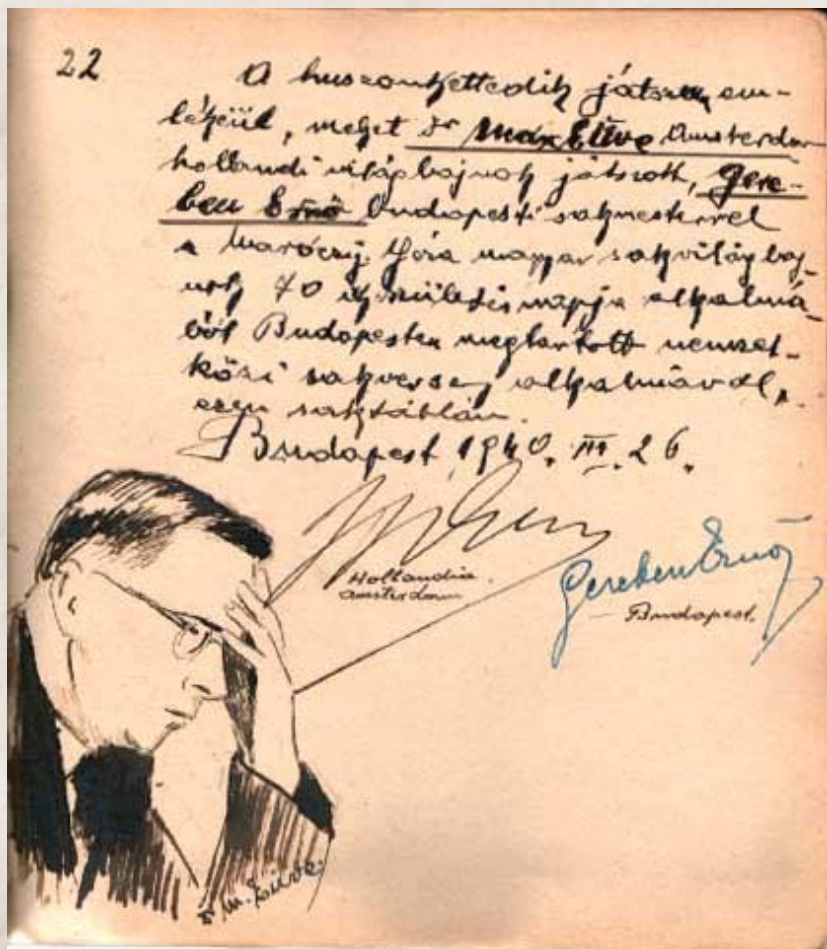 22
A huszonkettedik játszma em-
lékéül, melyet dr Max Euve Amsterdam
hollandi világbajnok játszott, Gere-
ben Ernő budapesti sakmesterrel
a Maróczy Géza magyar sakvilágbaj-
nok 70 ik születésnapja alkalmá-
ból Budapesten megtartott nemzet-
közi sakverseny alkalmával,
ezen saktáblán.
Budapest 1940. III. 26.
Hollandia.
Amsterdam
Gereben Ernő
Budapest.
D. M. Euve.